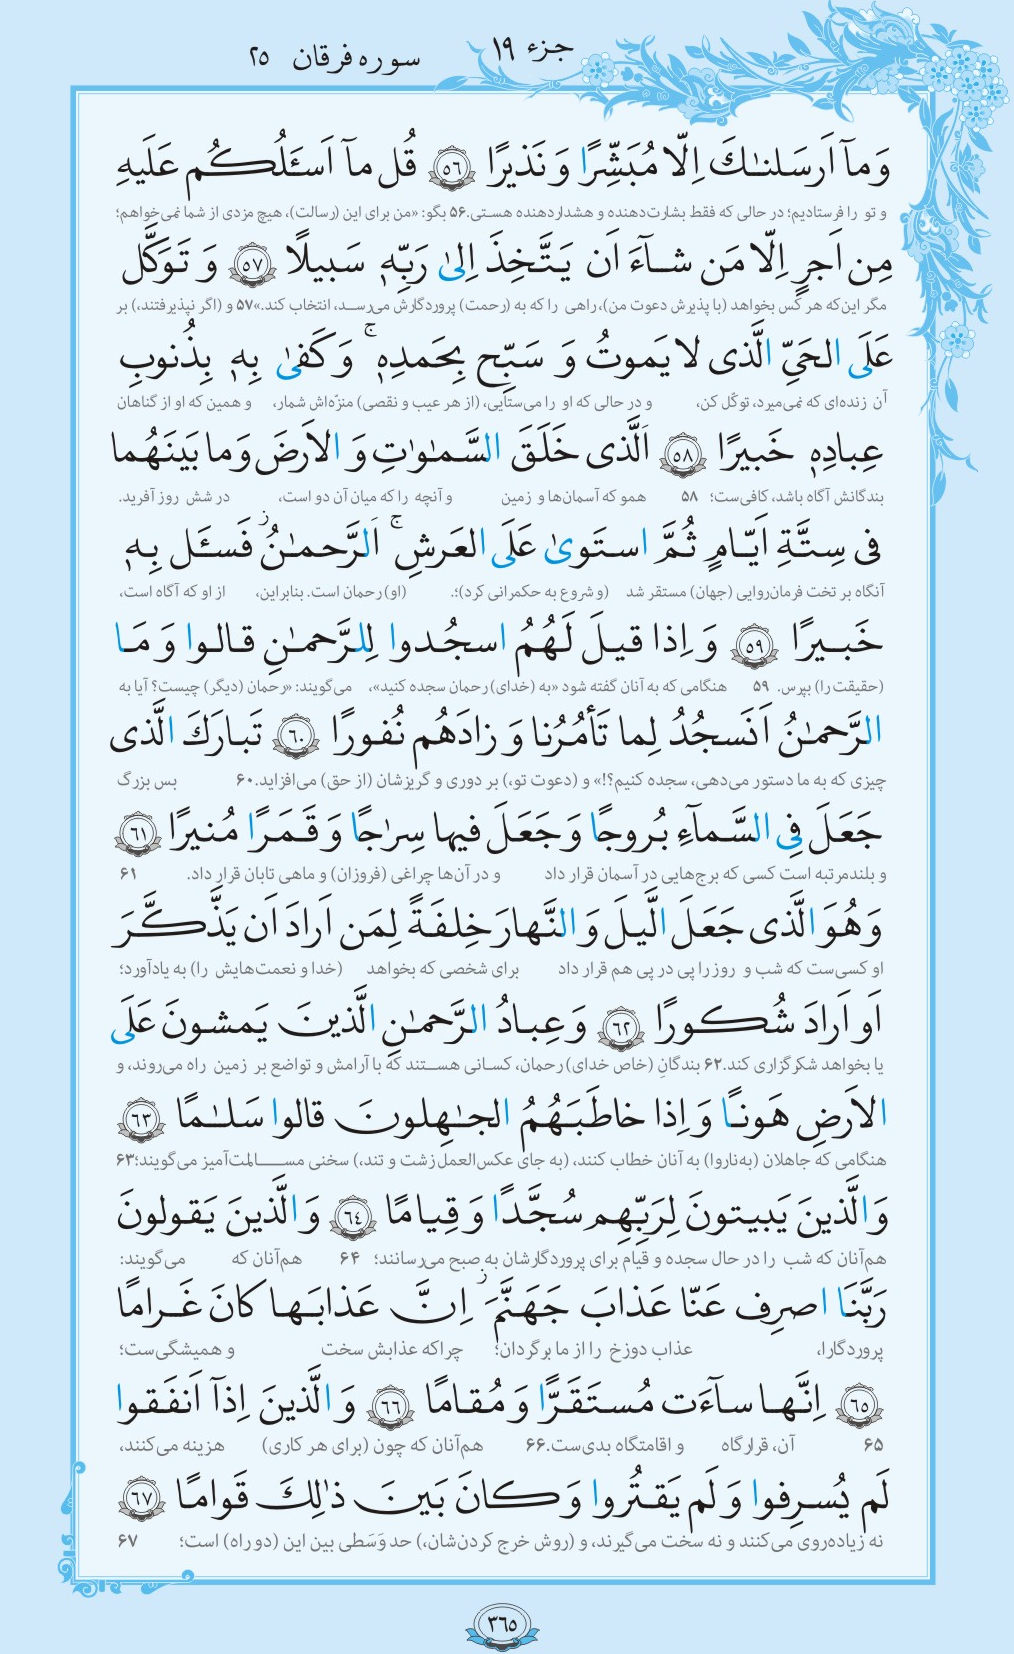 جزء ۱۹
سوره فرقان ۲۵
وَمآ اَرسَلنـٰكَ اِلّا مُبَشِّرًا وَ نَذيرًا ﴿٥٦﴾ قُل مآ اَسـَٔلُكُم عَلَيهِ
و تو را فرستادیم؛ در حالی که فقط بشارت‌دهنده و هشداردهنده هستی.۵۶ بگو: «من برای این (رسالت)، هیچ مزدی از شما نمی‌خواهم؛
مِن اَجرٍ اِلّا مَن شـآءَ اَن يَتَّخِذَ اِلىٰ رَبِّهٖ سَبيلًا ﴿٥٧﴾ وَ تَوَكَّل
مگر این‌که هر کس بخواهد (با پذیرش دعوت من)، راهی را که به (رحمت) پروردگارش می‌رسـد، انتخاب کند.»۵۷ و (اگر نپذیرفتند)، بر
عَلَى الحَيِّ الَّذى لا يَموتُ وَ سَبِّح بِحَمدِهٖ ۚ وَكَفىٰ بِهٖ بِذُنوبِ
آن زنده‌ای که نمی‌میرد، توکّل کن، و در حالی که او را می‌ستایی، (از هر عیب و نقصی) منزّه‌اش شمار، و همین که او از گناهان
عِبادِهٖ خَبيرًا ﴿٥٨﴾ اَلَّذى خَلَقَ السَّمـٰوٰتِ وَ الاَرضَ وَما بَينَهُما
بندگانش آگاه باشد، کافی‌ست؛ ۵۸ همو که آسمان‌ها و زمین و آنچه را که میان آن دو است، در شش روز آفرید.
فى سِتَّةِ اَيّامٍ ثُمَّ استَوىٰ عَلَى العَرشِ ۚ اَلرَّحمـٰنُ ۡ فَسـَٔل بِهٖ
آنگاه بر تخت فرمان‌روایی (جهان) مستقر شد (و شروع به حکمرانی کرد)؛. (او) رحمان است. بنابراین، از او که آگاه است،
خَبـيرًا ﴿٥٩﴾ وَ اِذا قيلَ لَهُمُ اسجُدوا لِلرَّحمـٰنِ قالوا وَ مَا
(حقیقت را) بپرس. ۵۹ هنگامی که به آنان گفته شود «به (خدای) رحمان سجده کنید»، می‌گویند: «رحمان (دیگر) چیست؟ آیا به
الرَّحمـٰنُ اَنَسجُدُ لِما تَأمُرُنا وَ زادَهُم نُفورًا ﴿٦٠﴾ تَبارَكَ الَّذى
چیزی که به ما دستور می‌دهی، سجده کنیم؟!» و (دعوت تو،) بر دوری و گریزشان (از حق) می‌افزاید.۶۰ بس بزرگ
جَعَلَ فِى السَّمآءِ بُروجًا وَ جَعَلَ فيها سِرٰجًا وَ قَمَرًا مُنيرًا ﴿٦١﴾
و بلندمرتبه است کسی که برج‌هایی در آسمان قرار داد و در آن‌ها چراغی (فروزان) و ماهی تابان قرار داد. ۶۱
وَهُوَ الَّذى جَعَلَ الَّيلَ وَ النَّهارَ خِلفَةً لِمَن اَرادَ اَن يَذَّكَّرَ
او کسی‌ست که شب و روز را پی در پی هم قرار داد برای شخصی که بخواهد (خدا و نعمت‌هایش را) به یادآورد؛
اَو اَرادَ شُكورًا ﴿٦٢﴾ وَعِبادُ الرَّحمـٰنِ الَّذينَ يَمشونَ عَلَى
یا بخواهد شکرگزاری کند.۶۲ بندگانِ (خاص خدای) رحمان، کسـانی هسـتند که با آرامش و تواضع بر زمین راه می‌روند، و
الاَرضِ هَونًـا وَ اِذا خاطَبَـهُمُ الجـٰهِلونَ قالوا سَلـٰمًا ﴿٦٣﴾
هنگامی که جاهلان (به‌ناروا) به آنان خطاب کنند، (به جای عکس‌العمل زشت و تند،) سخنی مسـالمت‌آمیز می‌گویند؛۶۳
وَالَّذينَ يَبيتونَ لِرَبِّهِم سُجَّدًا وَ قِيامًا ﴿٦٤﴾ وَ الَّذينَ يَقولونَ
هم‌آنان که شب را در حال سجده و قیام برای پروردگارشان به صبح می‌رسانند؛ ۶۴ هم‌آنان که می‌گویند:
رَبَّنَا اصرِف عَنّا عَذابَ جَهَنَّمَ ۡ اِنَّ عَذابَـها كانَ غَـرامًا
پروردگارا، عذاب دوزخ را از ما برگردان؛ چراکه عذابش سخت و همیشگی‌ست؛
﴿٦٥﴾ اِنَّهـا سآءَت مُستَقَرًّا وَ مُقامًا ﴿٦٦﴾ وَ الَّذينَ اِذآ اَنفَقوا
۶۵ آن، قرارگاه و اقامتگاه بدی‌ست.۶۶ هم‌آنان که چون (برای هر کاری) هزینه می‌کنند،
لَم يُسـرِفوا وَ لَم يَقـتُروا وَ كانَ بَينَ ذٰلِكَ قَوامًا ﴿٦٧﴾
نه زیاده‌روی می‌کنند و نه سخت می‌گیرند، و (روش خرج کردن‌شان،) حد وَسَطی بین این (دو راه) است؛ ۶۷
۳۶۵